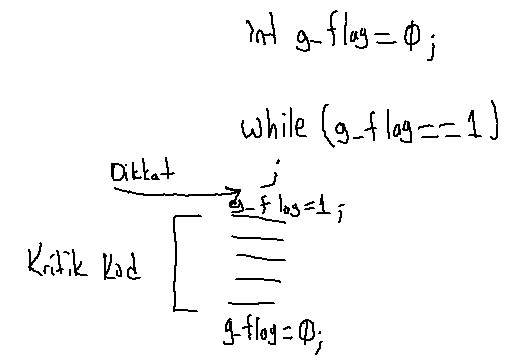 int g_flag=0;
while (g_flag==1)
;
Dikkat
g_flag=1;
Kritik Kod
g_flag=0;